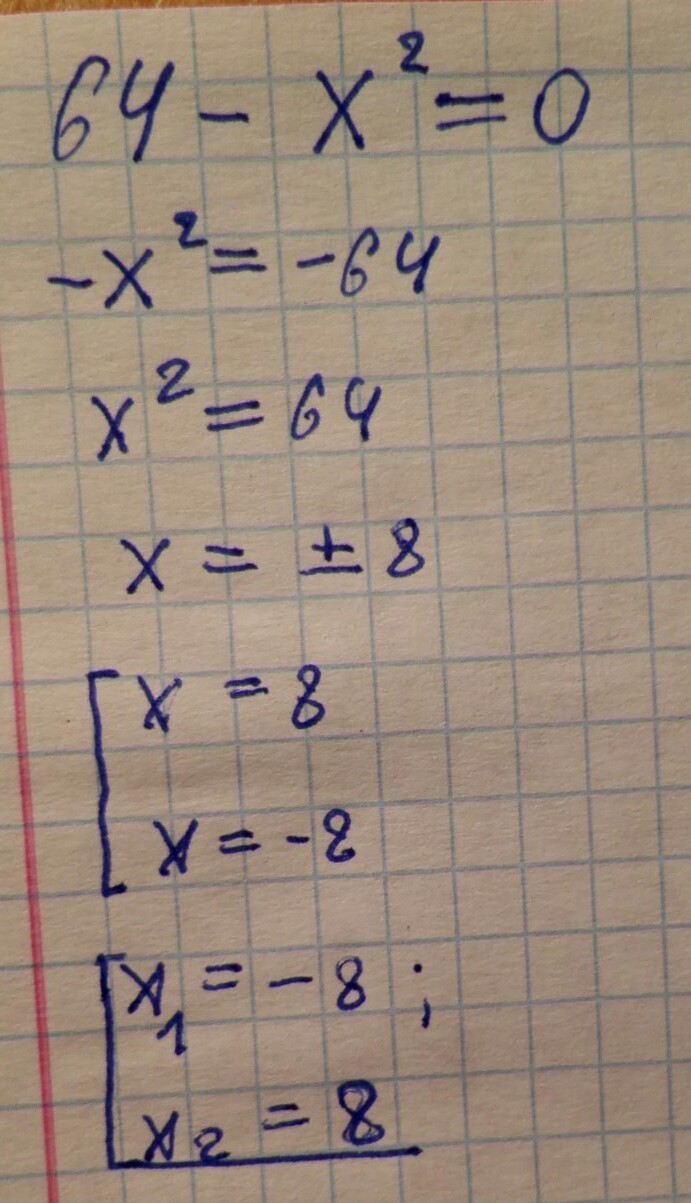 64 - x² = 0
-x² = -64
x² = 64
x = ± 8
x = 8
x = -8
x₁ = -8 ;
x₂ = 8